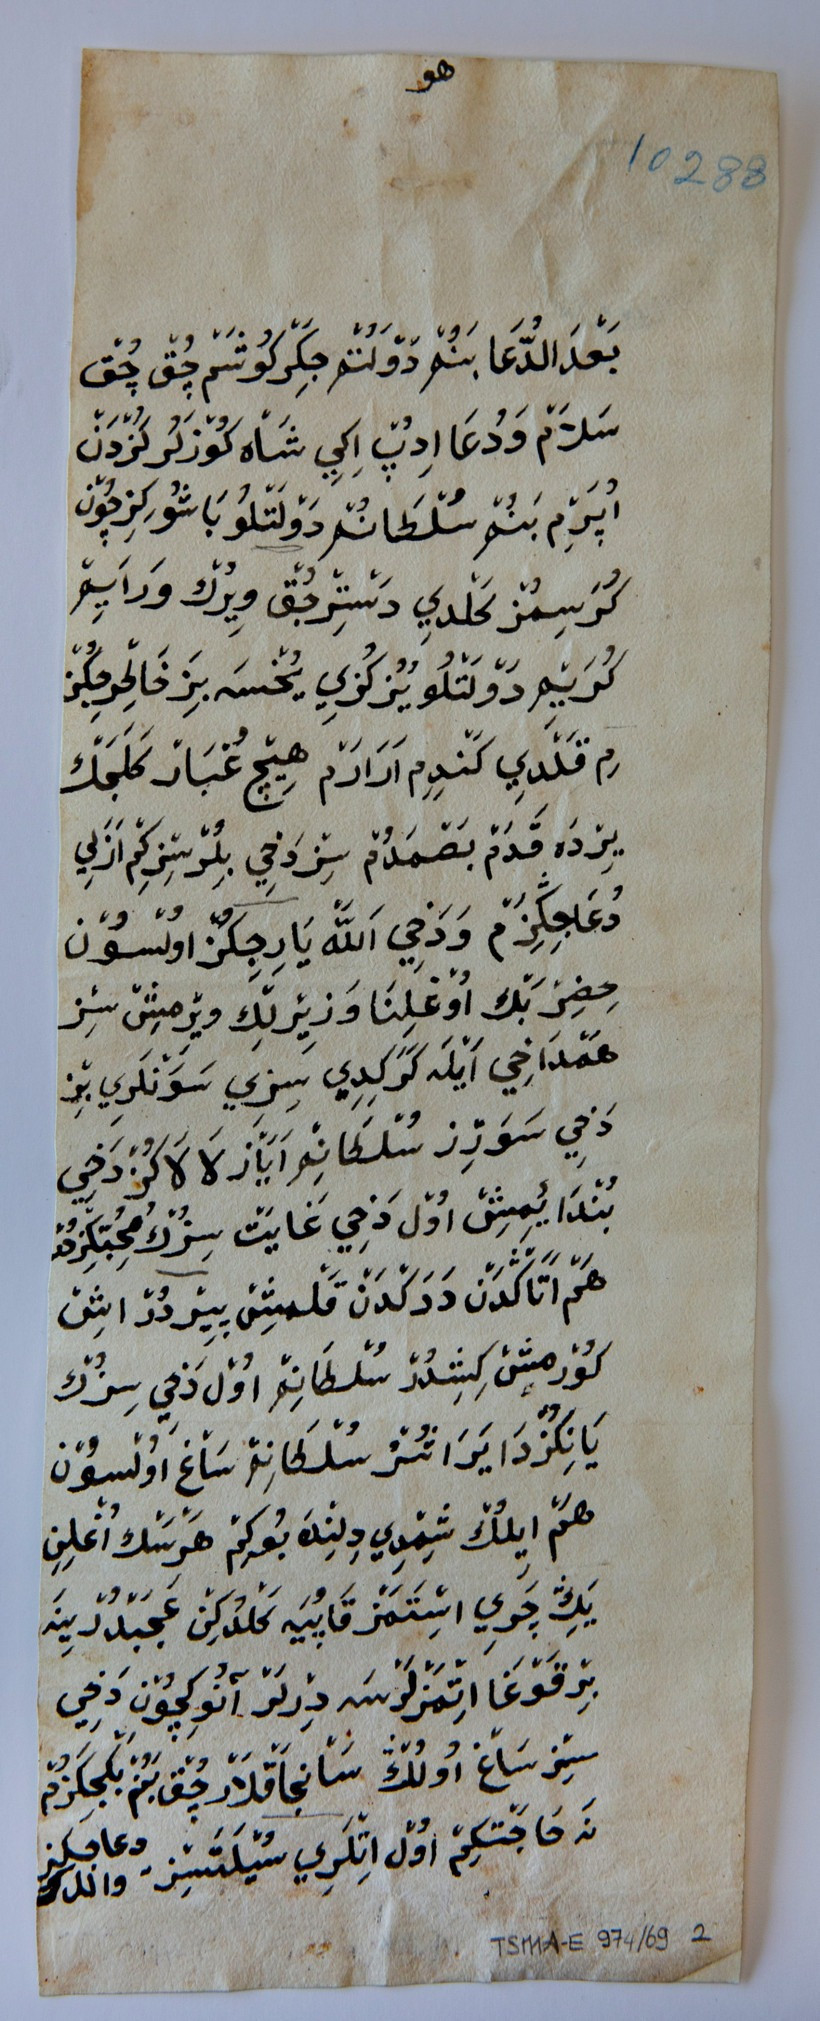 هو
10288
بَعْدَ الدُّعَا بَنُمْ دَوْلَتْمْ جِكَرْ كُوشَمْ چُقْ چُقْ
سَلَامْ وَدُعَا اِدُپْ اِكِي شَاه كُوْزلَرُكُزْدَنْ
اُپَرِمْ بَنُمْ سُلْطَانُمْ دَوْلَتْلُو بَاشُوكِزچُوْن
كُرَسِمُزْ كَلْدِي دَسْتِرْجُقْ وِيرُكْ وَرَايِمْ
كُرَيِمْ دَوْلَتْلُو يُزكُزِي يُخْسَه بِزْ خَالِجِكُزْ
مِ قَلْدِي كَنْدِمِ اَرَارَمْ هِيچْ غُبَارْ كَلَجَكْ
يِرْدَه قَدَمْ بَصْمَدُمْ سِزْ دَخِي بِلُرْسِزكِمْ اَزَلِي
دُعَاجِكِزَمْ وَدَخِي اَللّٰه يَارِجِكُزْ اولْسُوْن
حِضِرْ بَكْ اُوْغْلِنَا وَزِيرْلِكْ وِيرْمِشْ سِزْ
هَمْدَاخِي اَيْلَه كَرَكِدِي سِزِي سَوَنْلَرِي بِزْ
دَخِي سَوَرِزْ سُلْطَانِمْ اَيَازْ لَالَاكُزْ دَخِي
بُنْدَا يُمِشْ اوُلْ دَخِي غَايَتْ سِزُكْ مُحِبْتِكِزدُ
هَمْ اَتَاكْدَنْ دَدَكْدَنْ قَلْمِشْ بِيرْدُرْ اِشْ
كُوْرمِشْ كِشِدُرْ سُلْطَانِمْ اوُلْ دَخِي سِزُكْ
يَانِكُزْدَا يَرَاشُرْ سُلْطَانِمْ سَاغْ اوُلْسُوْن
هَمْ اِيلُكْ شِمْدِي دِلِنْدَه بُوكِمْ هَرْسَكْ اُغْلِنِ
يَكِچَرِي اِسْتَمَزْ قَاپُيَه كَلْدُكِنْ عَجَبْدُرْ يِنَه
بِرْ قَوْغَا اِتْمَزْلَرْسَه دِرلَرْ آنُوكِچُوْن دَخِي
سِزْ سَاغْ اوُلُكْ سَانْجَاقْلَارْ چُقْ بَنُمْ بَكْجِكَزُمْ
نَه حَاجَتْكِمْ اوُلْ اِتْلَرِي سُيْلَتَسِزْ دعاجكز
TSMA-E 974/69 2